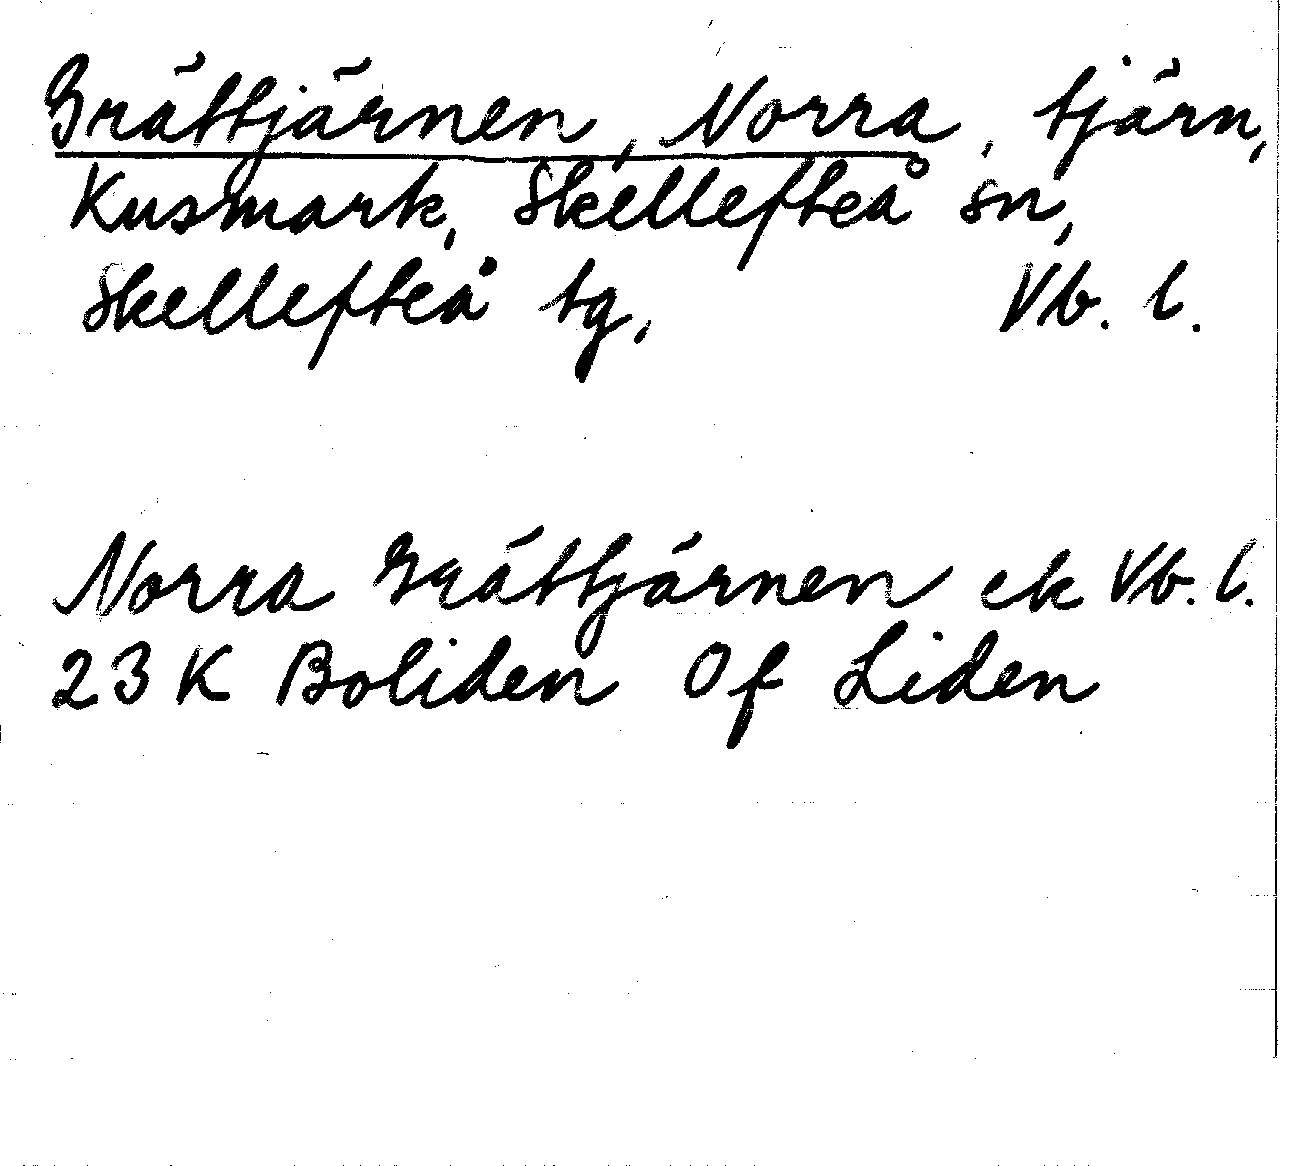 Grättjärnen, Norra, tjärn,
Kusmark, Skellefteå sn,
Skellefteå tg, Vb. l.
Norra Grättjärnen ek Vb. l.
23 K Boliden Of Liden